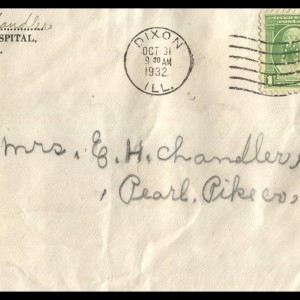 Chandler
SPITAL,
DIXON
OCT 31
9 30 AM
1932
ILL.
1
Mrs. E. H. Chandler,
Pearl. Pike co.